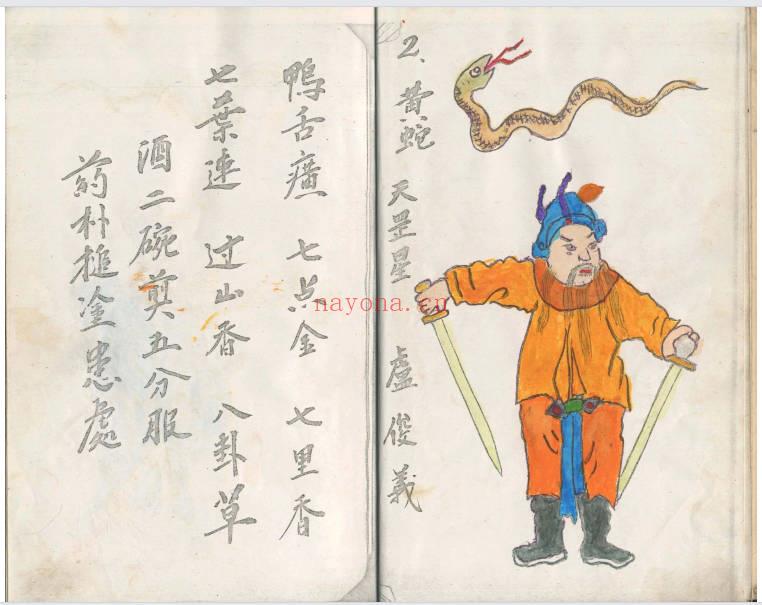 2、黄蛇 天罡星 盧俊義
鴨舌癀 七点金 七里香
七葉連 过山香 八卦草
酒二碗煎五分服
药朴搥塗患處
nayona.cn